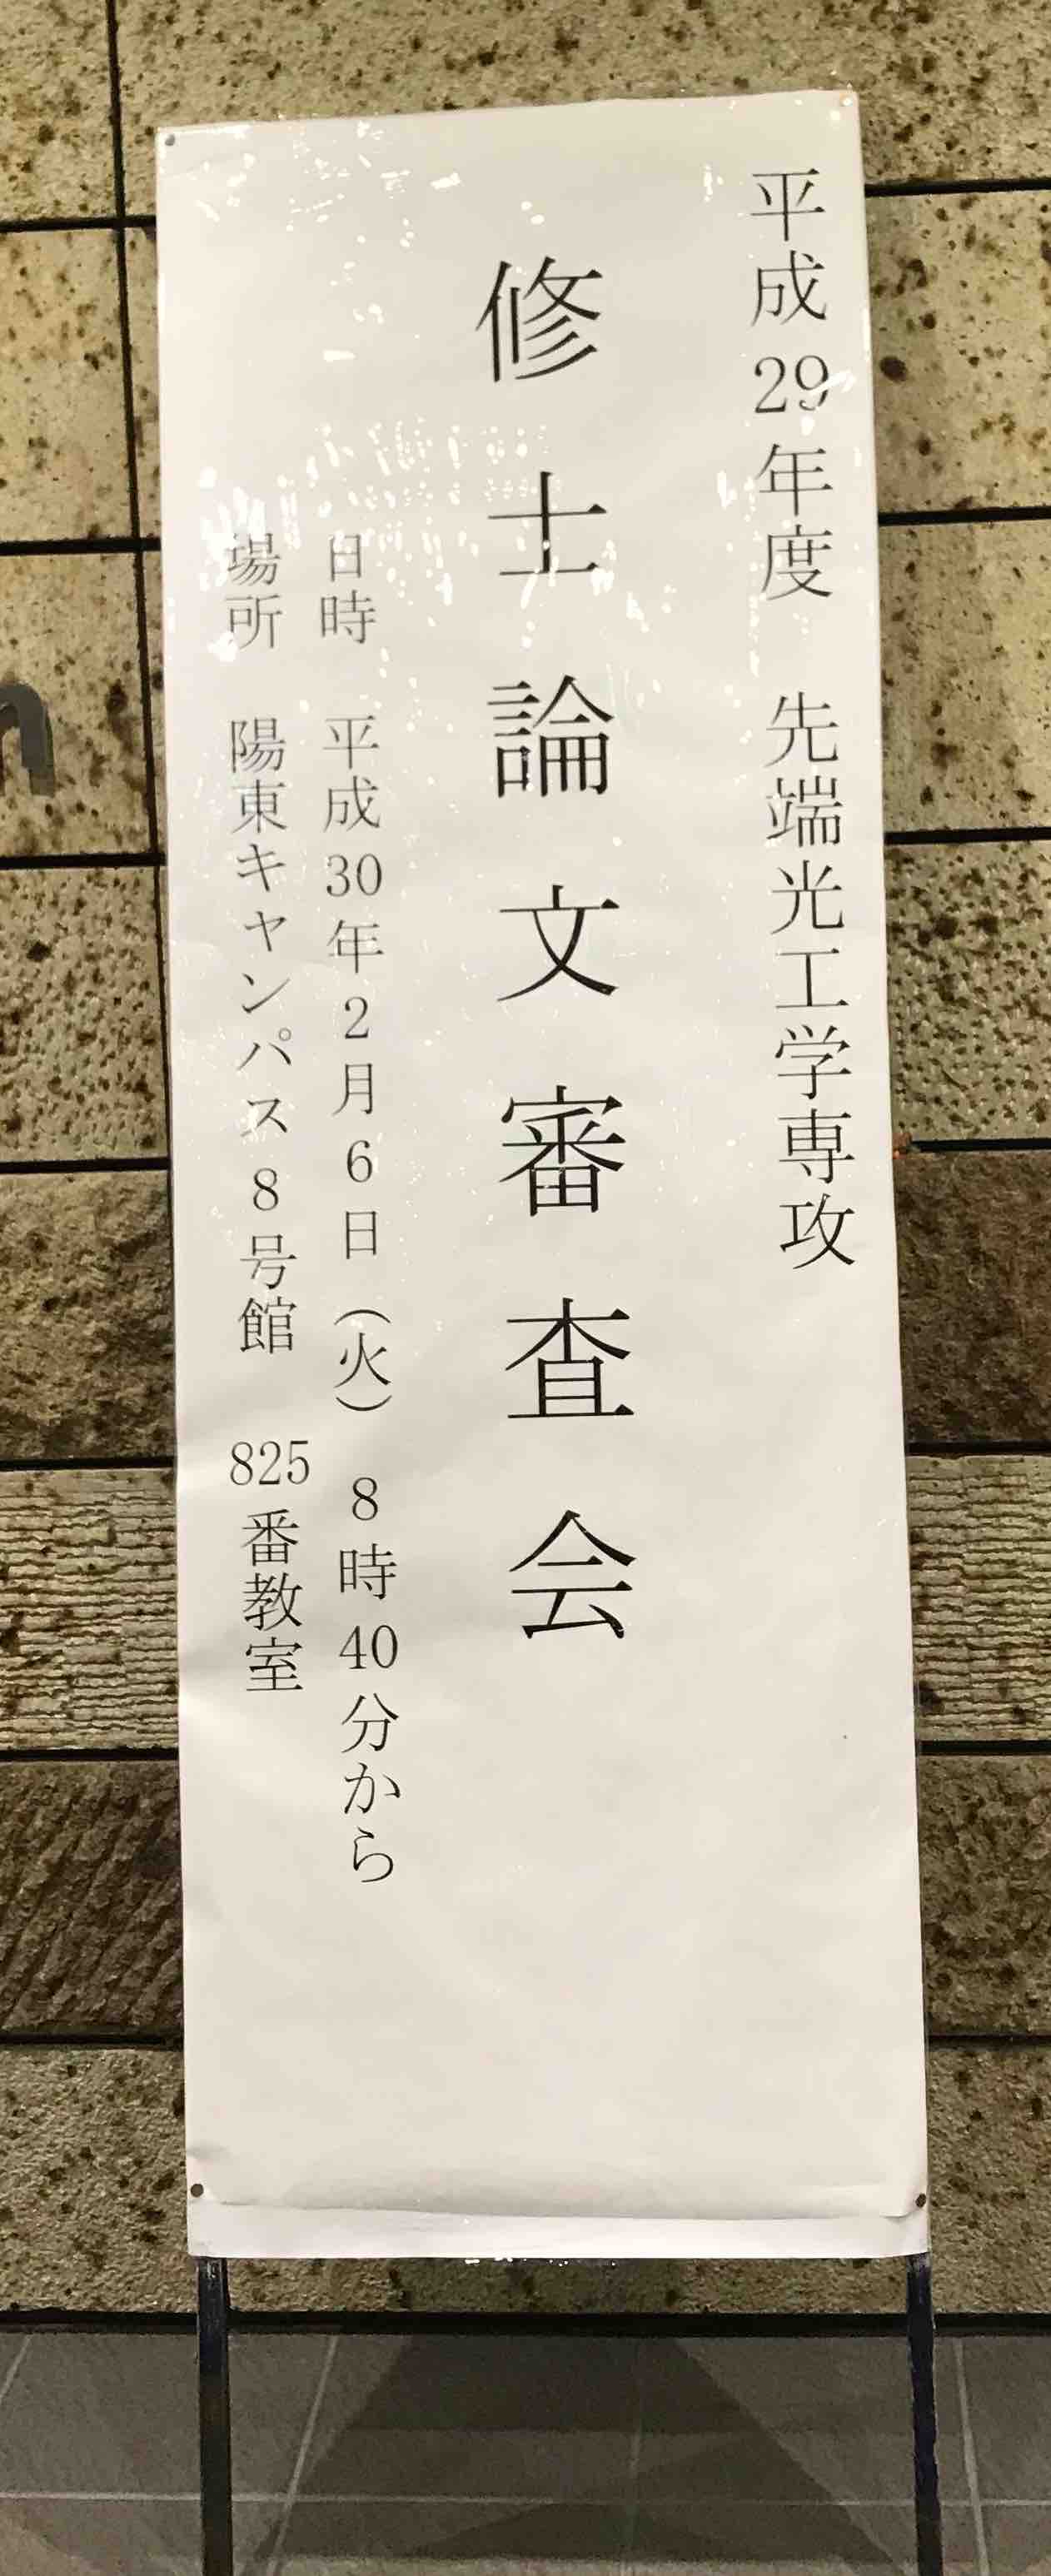 平成29年度　先端光工学専攻
修士論文審査会
日時　平成30年2月6日（火）　8時40分から
場所　陽東キャンパス8号館　825番教室
n